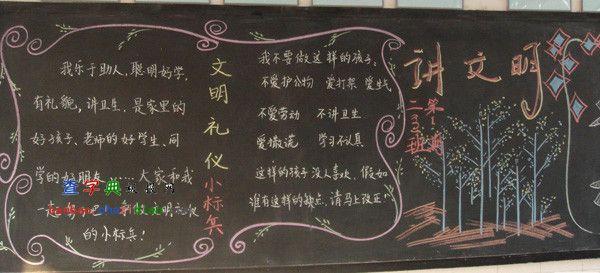 我乐于助人,聪明好学,
有礼貌,讲卫生,是家里的
好孩子、老师的好学生、同
学的好朋友……大家和我
做文明礼仪
的小标兵!
文明礼仪
小标兵
我不要做这样的孩子:
不爱护公物 爱打架 爱生气
不爱劳动 不讲卫生
爱撒谎 学习不认真
这样的孩子没人喜欢,假如
谁有这样的缺点,请马上改正!
讲文明
查字典